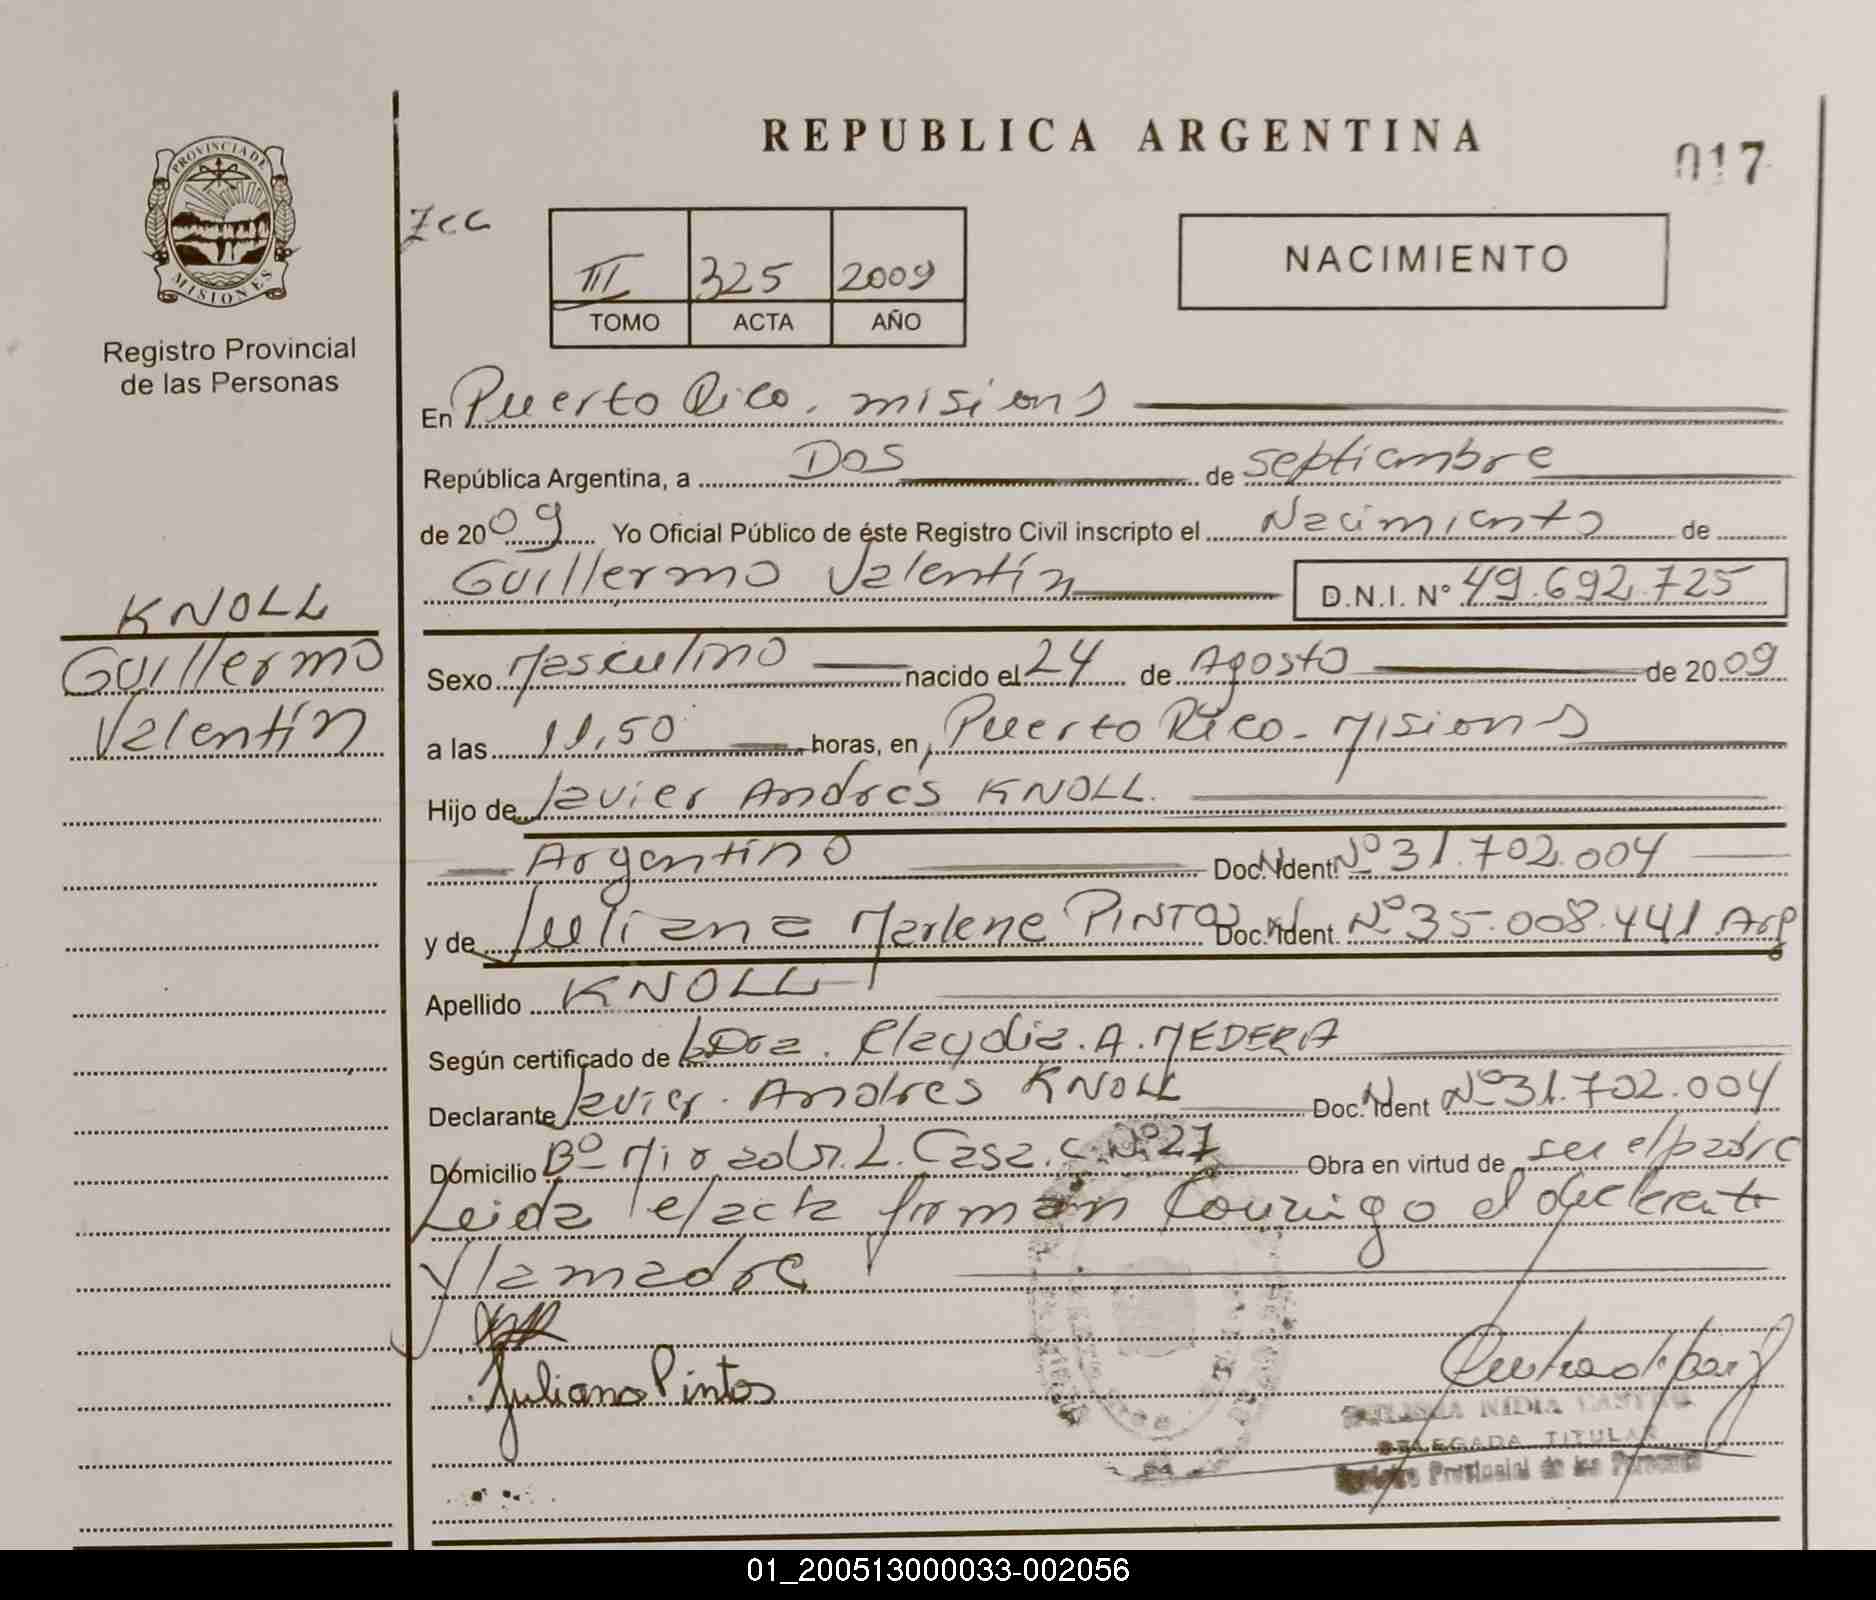 REPUBLICA ARGENTINA
017
PROVINCIA DE
MISIONES
Registro Provincial
de las Personas
III 325 2009
TOMO ACTA AÑO
NACIMIENTO
En Puerto Rico. misions
República Argentina, a Dos de septiembre
de 2009 Yo Oficial Público de éste Registro Civil inscripto el Nacimiento de
Guillermo Valentín D.N.I. N° 49.692.725
KNOLL
Guillermo
Valentín
Sexo Masculino nacido el 24 de Agosto de 2009
a las 11,50 horas, en Puerto Rico - Misions
Hijo de Javier Andrés KNOLL.
Argentino Doc. N. Ident. N° 31.702.004
y de Juliana Marlene PINTOS Doc. N. Ident. N° 35.008.441 Arg
Apellido KNOLL
Según certificado de Dra. Claudia. A. MEDERA
Declarante Javier. Andrés KNOLL Doc. N. Ident N° 31.702.004
Domicilio B° Mirador. L. Casa. N° 27 Obra en virtud de ser el padre
Leida el acta firman conmigo el declarante
y la madre
Juliana Pintos
NIDIA CASTRO
DELEGADA TITULAR
Registro Provincial de las Personas
01_200513000033-002056